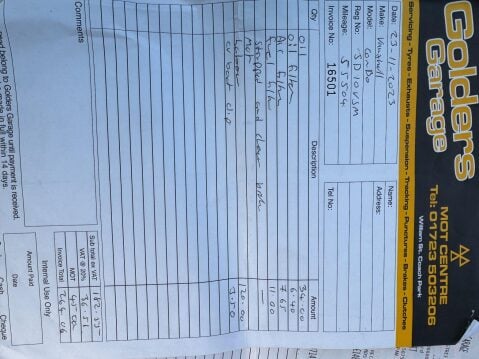 Golders
Garage
MOT CENTRE
Tel: 01724 503206
William St. Coach Park
Servicing - Tyres - Exhausts - Suspension - Tracking - Punctures - Brakes - Clutches
Date: 23-11-2023
Make: Vauxhall
Model: Combo
Reg No:
Mileage: 55504
Invoice No: 16501
Name:
Address:
Tel No:
Qty Description Amount
OIL 34.00
OIL filter 6.40
Air filter 7.65
fuel filter 11.00
stripped and clean
120.00
cv boot clip
Comments
Sub total ex VAT
VAT @ 20% 36.51
MOT 45.00
Invoice Total 264.06
Internal Use Only
Amount Paid
Date
Cash Cheque
belong to Golders Garage until payment is received.
made in full within 14 days.